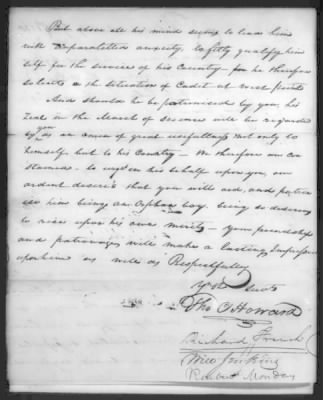 But above all his mind seems to lead him
with unparalelled anxiety to fitly qualify him
self for the service of his Country for he therefore
solicits the situation of Cadet at west point
And should he be patronised by you, his
Zeal in the March of Science will be regarded
by you as an omen of great usefullness not only to
himself but to his Country — We therefore are con
strained to his behalf upon you, our
ardent desire that you will aid, and patron
ise him being an Orphan boy, being so desirous
to rise upon his own merits — your friendship
and patronage will make a lasting Impression
upon him as well as Respectfully
yr obt Servts
Tho C Howard
Richard French
Jenkins
Robert Monday